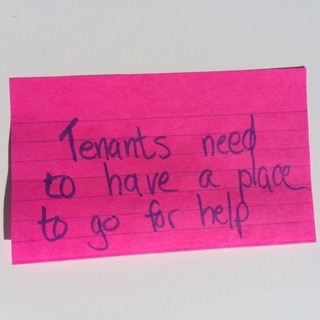 Tenants need
to have a place
to go for help